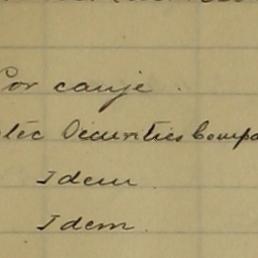 Por canje.
tec Securities Compa
Idem.
Idem.